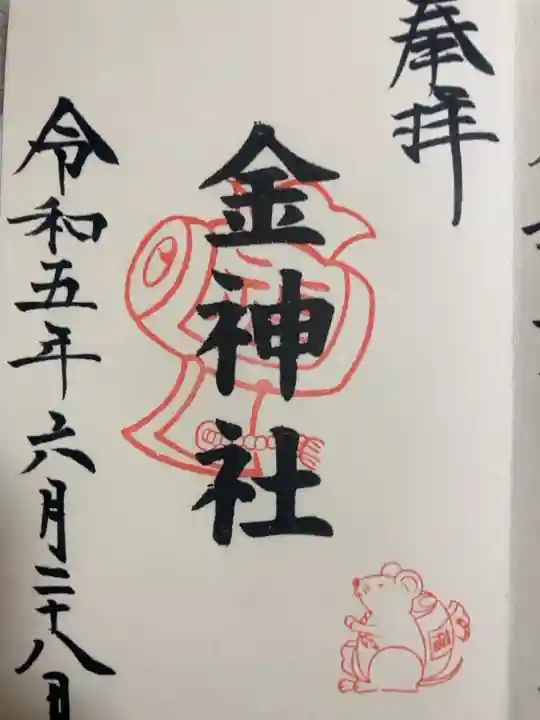 奉拝
金神社
令和五年六月二十八日